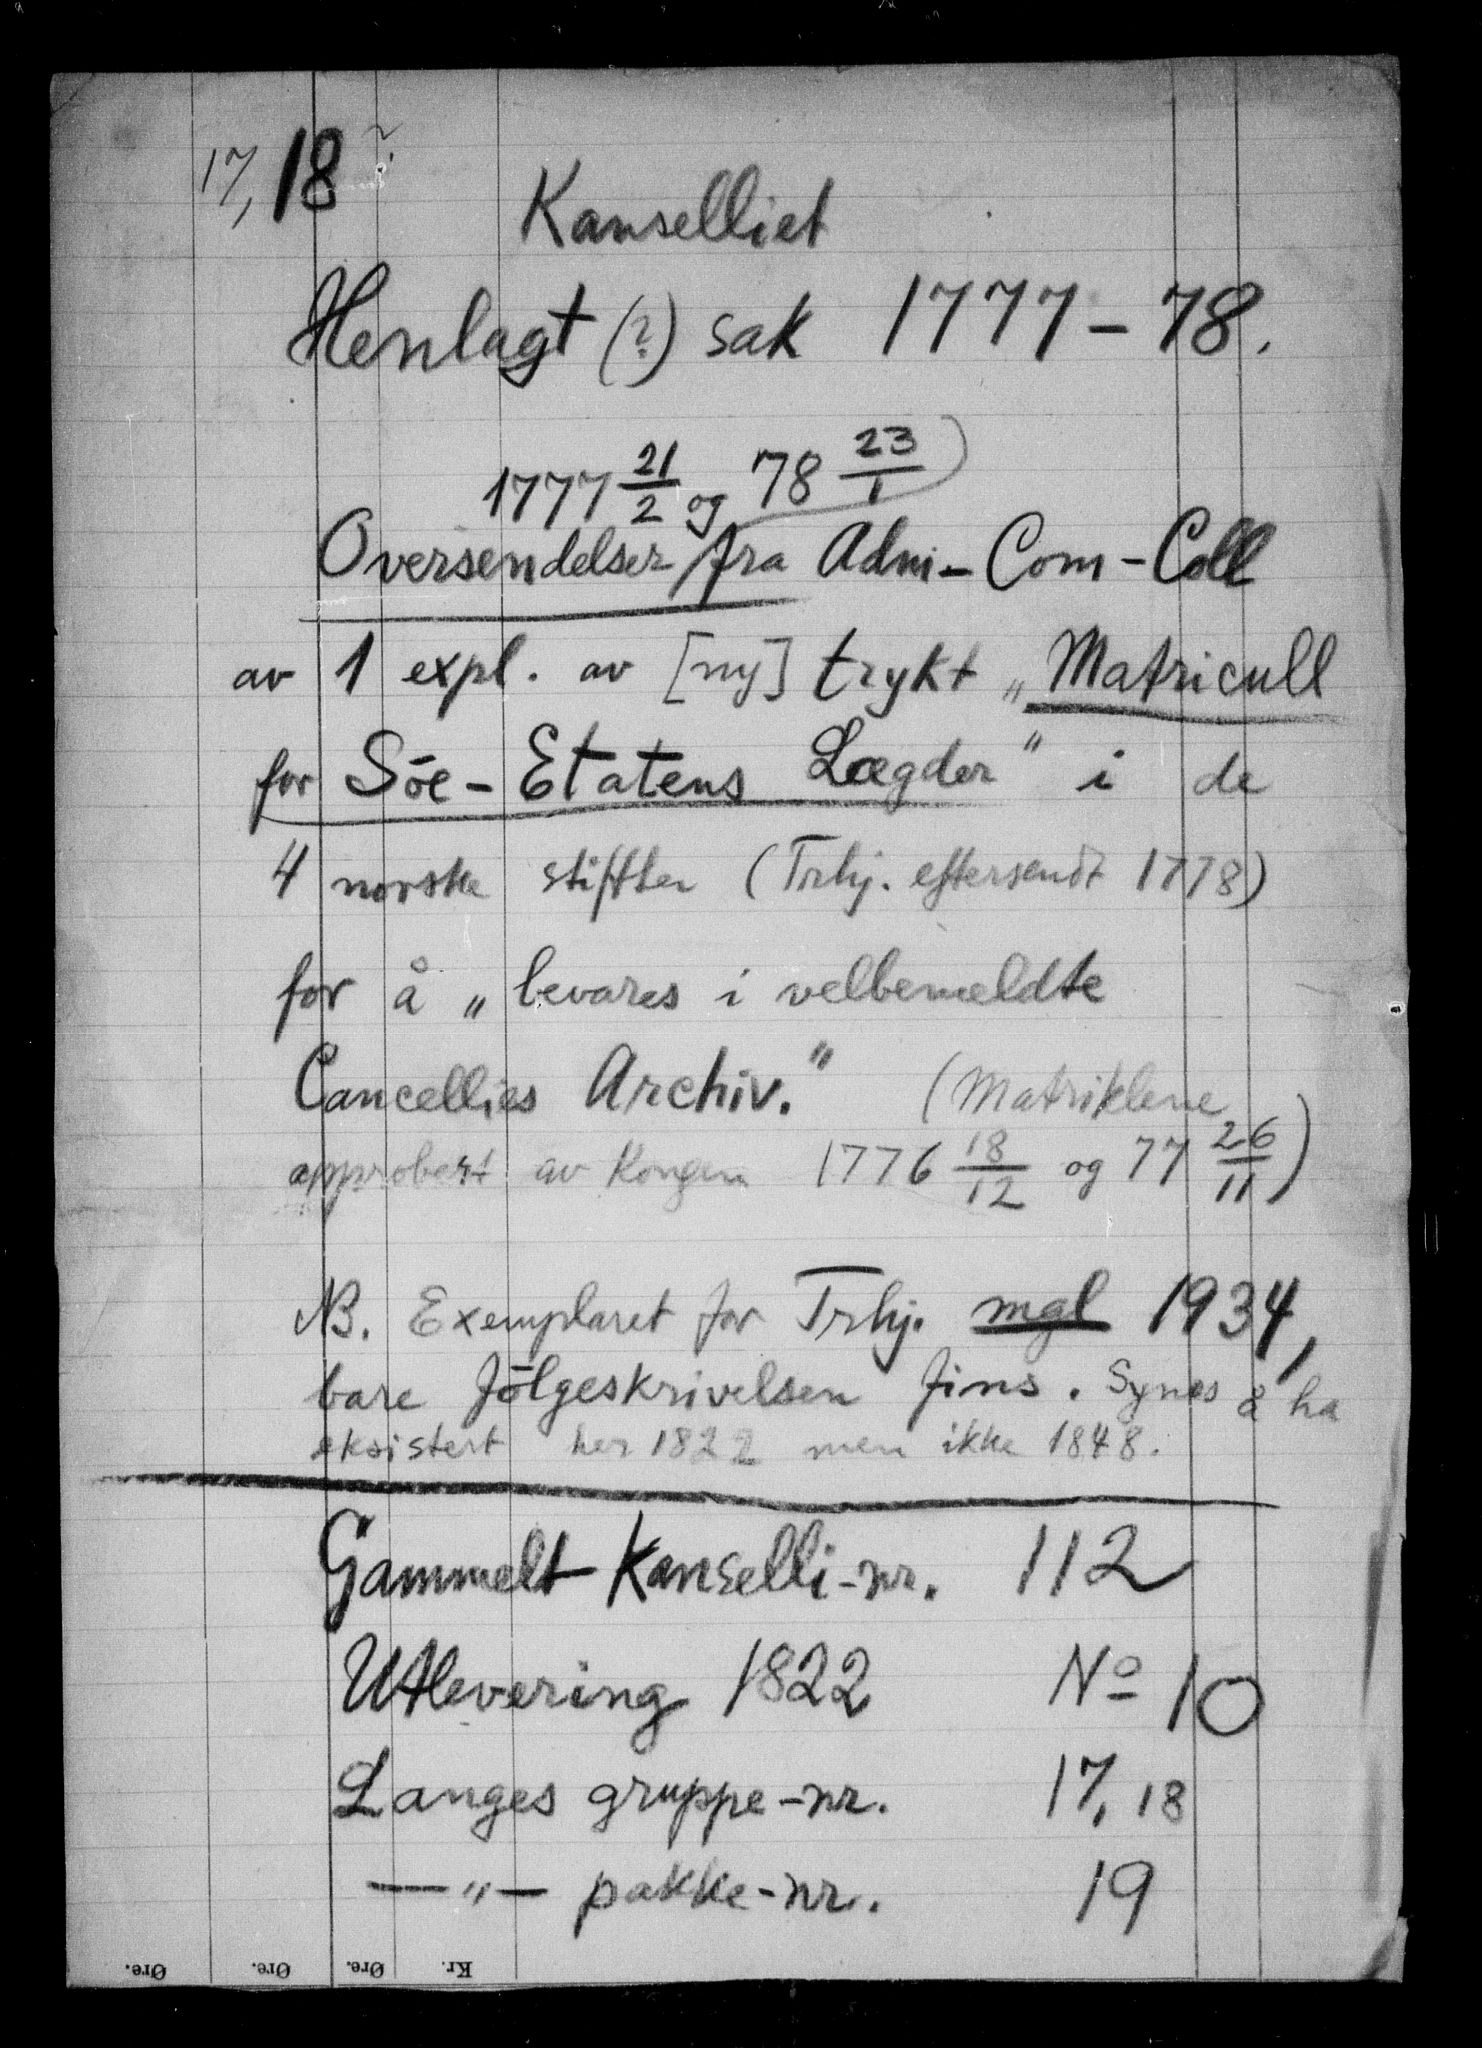 17, 18 ?
Kanselliet
Henlagt (?) sak 1777-78.
1777 21/2 og 78 23/1
Oversendelser fra Adm-Com-Coll
av 1 expl. av [ny] trykt „Matricull
for Söe-Etatens Lægder" i de
4 norske stifter (Trhj. eftersendt 1778)
for å „bevares i velbemeldte
Cancellies Archiv." (Matriklene
approbert av Kongen 1776 18/12 og 77 26/11)
NB. Exemplaret for Trhj. mgl 1934,
bare fölgeskrivelsen fins. Synes å ha
eksistert her 1822 men ikke 1848.
Gammelt Kanselli-nr. 112
Utlevering 1822 No 10
Langes gruppe-nr. 17, 18
—„— pakke-nr. 19
Øre. Øre. Øre. Kr.